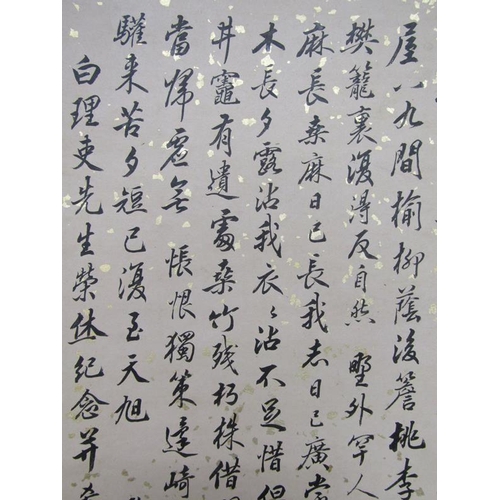 屋八九間榆柳蔭後簷桃李
樊籠裏復得反自然 野外罕人
麻長桑麻日已長我志日已廣常
木長夕露沾我衣〻沾不足惜但
井竈有遺處桑竹殘朽株借
當歸虛無 悵恨獨策還崎
驩来苦夕短已復至天旭
白理吏先生榮休紀念并